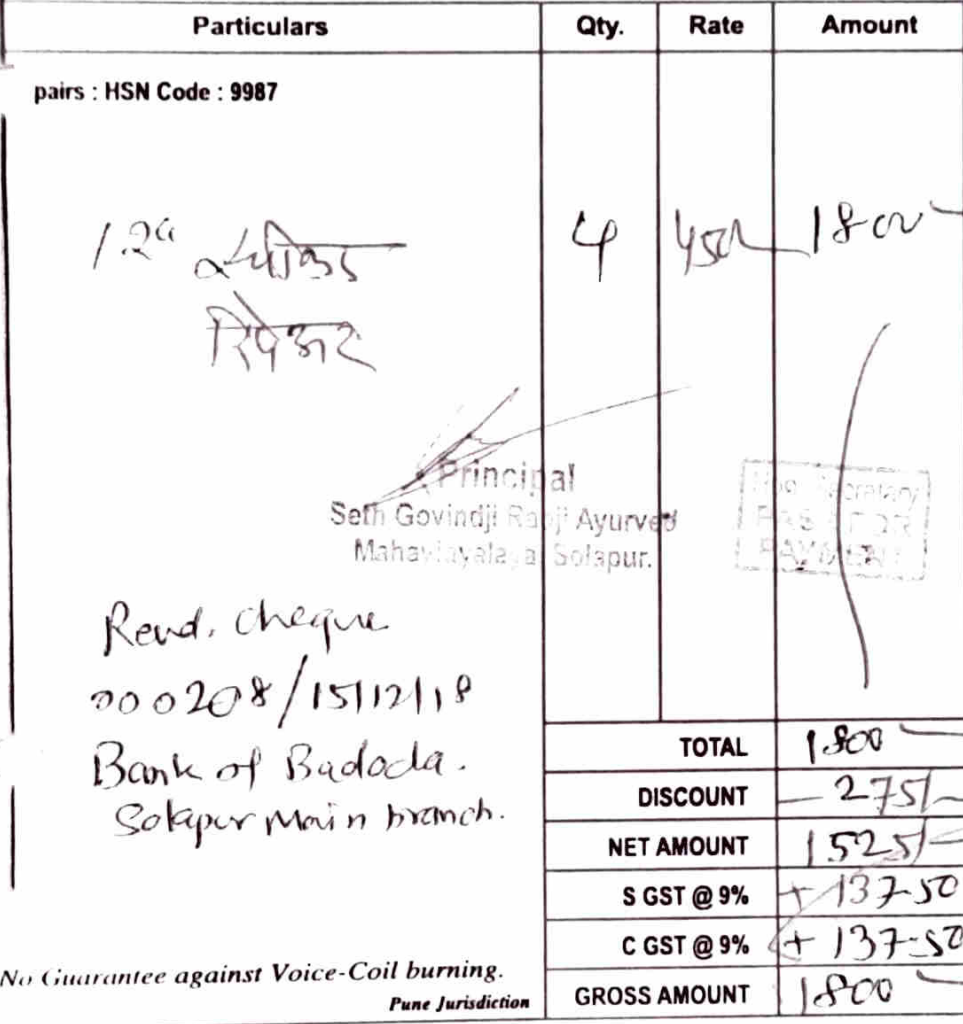 Particulars Qty. Rate Amount
pairs : HSN Code : 9987
12" स्पीकर 4 450/- 1800/-
रिपेअर
Principal
Seth Govindji Raoji Ayurved
Mahavidyalaya Solapur.
Hon. Secretary
PASS FOR
PAYMENT
Revd. Cheque
000208/15/12/18
Bank of Badoda.
Solapur Main branch.
TOTAL 1800/-
DISCOUNT - 275/-
NET AMOUNT 1525/-
S GST @ 9% + 137-50
C GST @ 9% + 137-50
GROSS AMOUNT 1800/-
No Guarantee against Voice-Coil burning.
Pune Jurisdiction